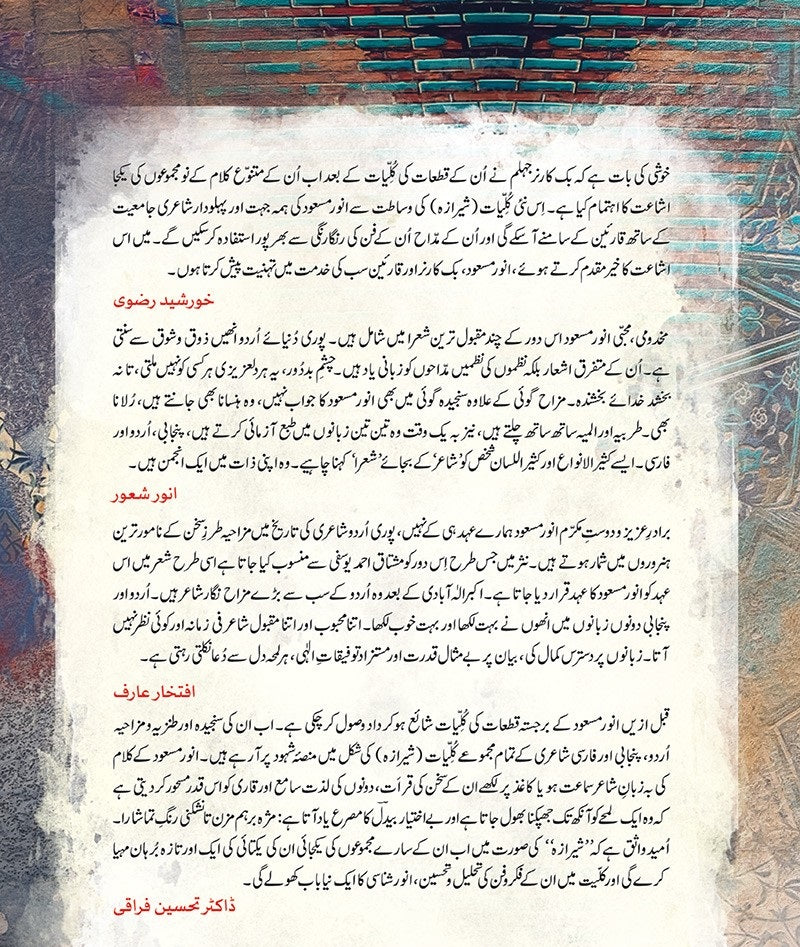 خوشی کی بات ہے کہ بک کارنر جہلم نے اُن کے قطعات کی کُلّیات کے بعد اب اُن کے متنوّع کلام کے نو مجموعوں کی یکجا
اشاعت کا اہتمام کیا ہے۔ اِس نئی کُلّیات (شیرازہ) کی وساطت سے انور مسعود کی ہمہ جہت اور پہلودار شاعری جامعیت
کے ساتھ قارئین کے سامنے آسکے گی اور اُن کے مدّاح اُن کے فن کی رنگارنگی سے بھرپور استفادہ کرسکیں گے۔ میں اس
اشاعت کا خیر مقدم کرتے ہوئے، انور مسعود، بک کارنر اور قارئین سب کی خدمت میں تہنیت پیش کرتا ہوں۔
خورشید رضوی
مخدومی، محبّی انور مسعود اس دور کے چند مقبول ترین شعرا میں شامل ہیں۔ پوری دُنیائے اُردو انھیں ذوق و شوق سے سنتی
ہے۔ اُن کے متفرق اشعار بلکہ نظموں کی نظمیں مدّاحوں کو زبانی یاد ہیں۔ چشمِ بد دُور، یہ ہردلعزیزی ہر کسی کو نہیں ملتی، تا نہ
بخشد خدائے بخشندہ۔ مزاح گوئی کے علاوہ سنجیدہ گوئی میں بھی انور مسعود کا جواب نہیں، وہ ہنسانا بھی جانتے ہیں، رُلانا
بھی۔ طربیہ اور المیہ ساتھ ساتھ چلتے ہیں، نیز بہ یک وقت وہ تین تین زبانوں میں طبع آزمائی کرتے ہیں، پنجابی، اُردو اور
فارسی۔ ایسے کثیر الانواع اور کثیر اللسان شخص کو ’شاعر‘ کے بجائے ’شعرا‘ کہنا چاہیے۔ وہ اپنی ذات میں ایک انجمن ہیں۔
انور شعور
برادرِ عزیز و دوستِ مکرّم انور مسعود ہمارے عہد ہی کے نہیں، پوری اُردو شاعری کی تاریخ میں مزاحیہ طرزِ سخن کے نامور ترین
ہنروروں میں شمار ہوتے ہیں۔ نثر میں جس طرح اِس دور کو مشتاق احمد یوسفی سے منسوب کیا جاتا ہے اسی طرح شعر میں اس
عہد کو انور مسعود کا عہد قرار دیا جاتا ہے۔ اکبر الٰہ آبادی کے بعد وہ اُردو کے سب سے بڑے مزاح نگار شاعر ہیں۔ اُردو اور
پنجابی دونوں زبانوں میں انھوں نے بہت لکھا اور بہت خوب لکھا۔ اتنا محبوب اور اتنا مقبول شاعر فی زمانہ اور کوئی نظر نہیں
آتا۔ زبانوں پر دسترس کمال کی، بیان پر بے مثال قدرت اور مستزاد توفیقاتِ الٰہی، ہر لمحہ دل سے دُعا نکلتی رہتی ہے۔
افتخار عارف
قبل ازیں انور مسعود کے برجستہ قطعات کی کُلّیات شائع ہو کر داد وصول کر چکی ہے۔ اب ان کی سنجیدہ اور طنزیہ و مزاحیہ
اُردو، پنجابی اور فارسی شاعری کے تمام مجموعے کُلّیات (شیرازہ) کی شکل میں منصۂ شہود پر آ رہے ہیں۔ انور مسعود کے کلام
کی بہ زبانِ شاعر سماعت ہو یا کاغذ پر لکھے ان کے سخن کی قرأت، دونوں کی لذت سامع اور قاری کو اس قدر مسحور کر دیتی ہے
کہ وہ ایک لمحے کو آنکھ تک جھپکنا بھول جاتا ہے اور بے اختیار بیدلؔ کا مصرع یاد آتا ہے: مژہ برہم مزن تا نشکنی رنگِ تماشا را۔
اُمیدِ واثق ہے کہ ’’شیرازہ‘‘ کی صورت میں اب ان کے سارے مجموعوں کی یکجائی ان کی یکتائی کی ایک اور تازہ بُرہان مہیا
کرے گی اور کلّیت میں ان کے فکر و فن کی تحلیل و تحسین، انور شناسی کا ایک نیا باب کھولے گی۔
ڈاکٹر تحسین فراقی